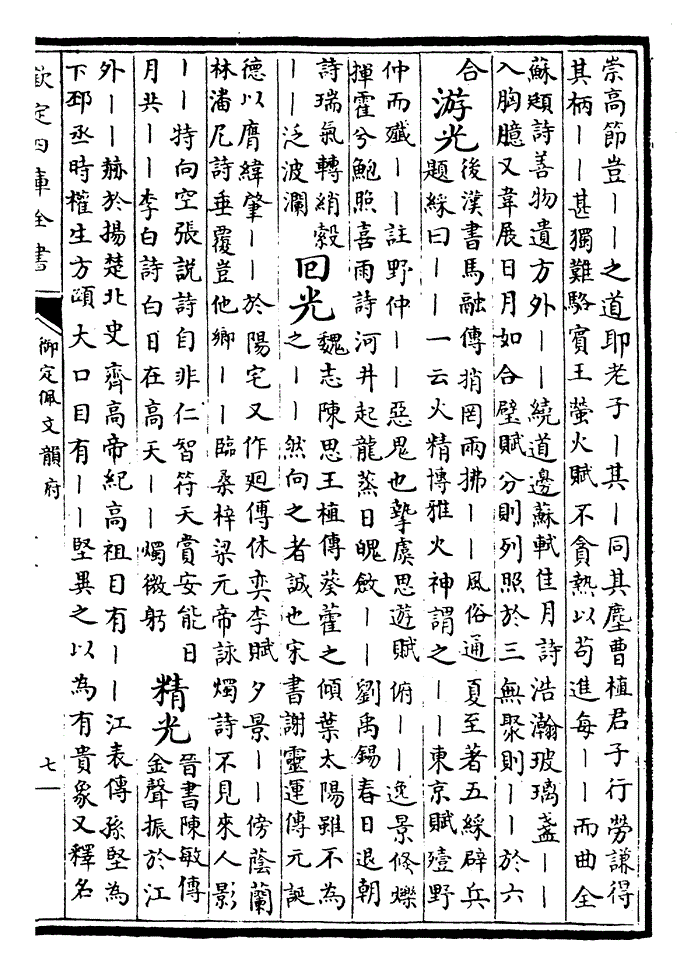 崇高節豈丨丨之道耶老子丨其丨同其塵曹植君子行勞謙得
其柄丨丨甚獨難駱賓王螢火賦不貪熱以苟進每丨丨而曲全
蘇頲詩善物遺方外丨丨繞道邊蘇軾佳月詩浩瀚玻璃盞丨丨
入胸臆又韋展日月如合璧賦分則列照於三無聚則丨丨於六
合
游光
後漢書馬融傳捎罔兩拂丨丨風俗通夏至著五綵辟兵
題綵曰丨丨一云火精博雅火神謂之丨丨東京賦殪野
仲而殲丨丨註野仲丨丨惡鬼也摯虞思遊賦俯丨丨逸景倏爍
揮霍兮鮑照喜雨詩河井起龍蒸日魄斂丨丨劉禹錫春日退朝
詩瑞氣轉綃縠
丨丨泛波瀾
回光
魏志陳思王植傳葵藿之傾葉太陽雖不為
之丨丨然向之者誠也宋書謝靈運傳元誕
德以膺緯肇丨丨於陽宅又作廻傅休奕李賦夕景丨丨傍蔭蘭
林潘尼詩垂覆豈他鄉丨丨臨桑梓梁元帝詠燭詩不見來人影
丨丨特向空張說詩自非仁智符天賞安能日
月共丨丨李白詩白日在高天丨丨燭微躬
精光
晉書陳敏傳
金聲振於江
外丨丨赫於揚楚北史齊高帝紀高祖目有丨丨江表傳孫堅為
下邳丞時權生方頤大口目有丨丨堅異之以為有貴象又釋名
欽定四庫全書
御定佩文韻府
七